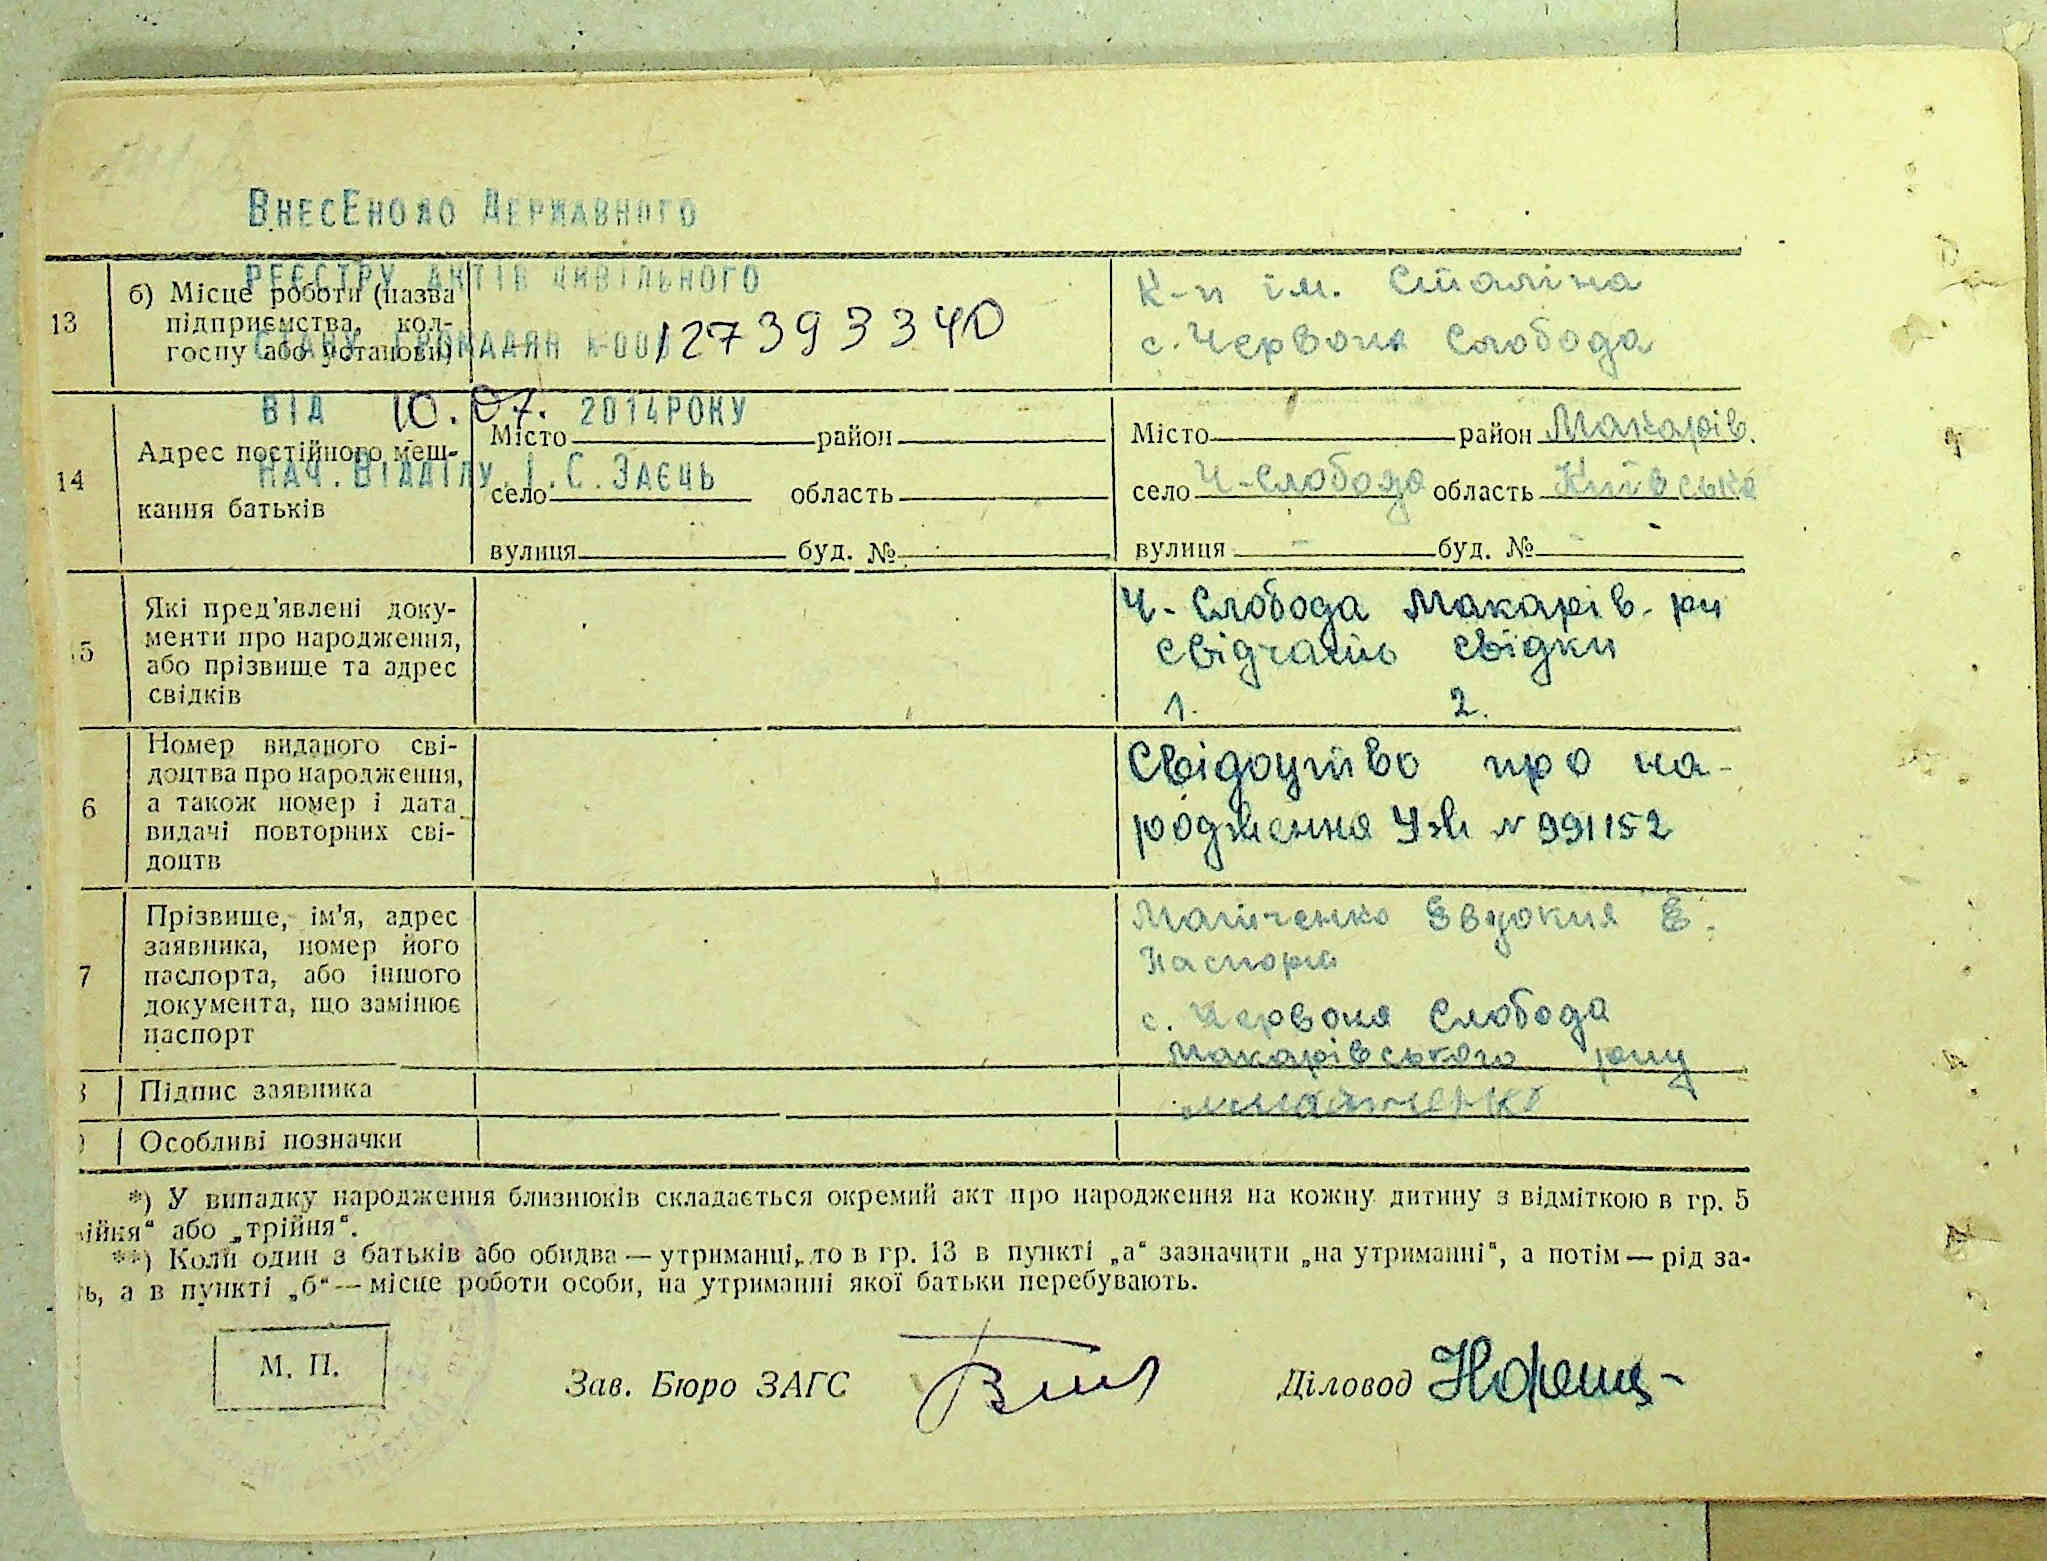 ВНЕСЕНО ДО ДЕРЖАВНОГО
РЕЄСТРУ АКТІВ ЦИВІЛЬНОГО
СТАНУ ГРОМАДЯН №00012739 3340
ВІД 10.07. 2014 РОКУ
НАЧ. ВІДДІЛУ І.С. ЗАЄЦЬ
13
б) Місце роботи (назва
підприємства, кол-
госпу або установи)
К-п ім. Сталіна
с. Червона Слобода
14
Адрес постійного меш-
кання батьків
Місто район
село область
вулиця буд. №
Місто район Макарів.
село Ч-Слобода область Київська
вулиця - буд. № -
5
Які пред'явлені доку-
менти про народження,
або прізвище та адрес
свідків
Ч-Слобода Макарів. рн
свідчать свідки
1. 2.
6
Номер виданого сві-
доцтва про народження,
а також номер і дата
видачі повторних сві-
доцтв
Свідоцтво про на-
родження УЖ № 991152
7
Прізвище, ім'я, адрес
заявника, номер його
паспорта, або іншого
документа, що замінює
паспорт
Матченко Евдокия Е.
Паспорт
с. Червона Слобода
Макарівського рну
Підпис заявника
Особливі позначки
*) У випадку народження близнюків складається окремий акт про народження на кожну дитину з відміткою в гр. 5
ійня" або „трійня".
**) Коли один з батьків або обидва — утриманці, то в гр. 13 в пункті „а" зазначити „на утриманні", а потім — рід за-
ь, а в пункті „б" — місце роботи особи, на утриманні якої батьки перебувають.
М. П.
Зав. Бюро ЗАГС
Діловод